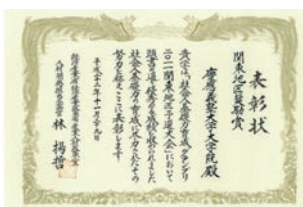 表彰状
関東地区奨励賞
慶應義塾大学大学院 殿
貴学は「社会人基礎力育成グランプリ
二〇一一関東地区予選大会」において
頭書の通り優秀な成績を収められました
社会人基礎力の育成に尽力されたその
努力を称えここに表彰します
平成二十三年十一月二十九日
林 揚哲